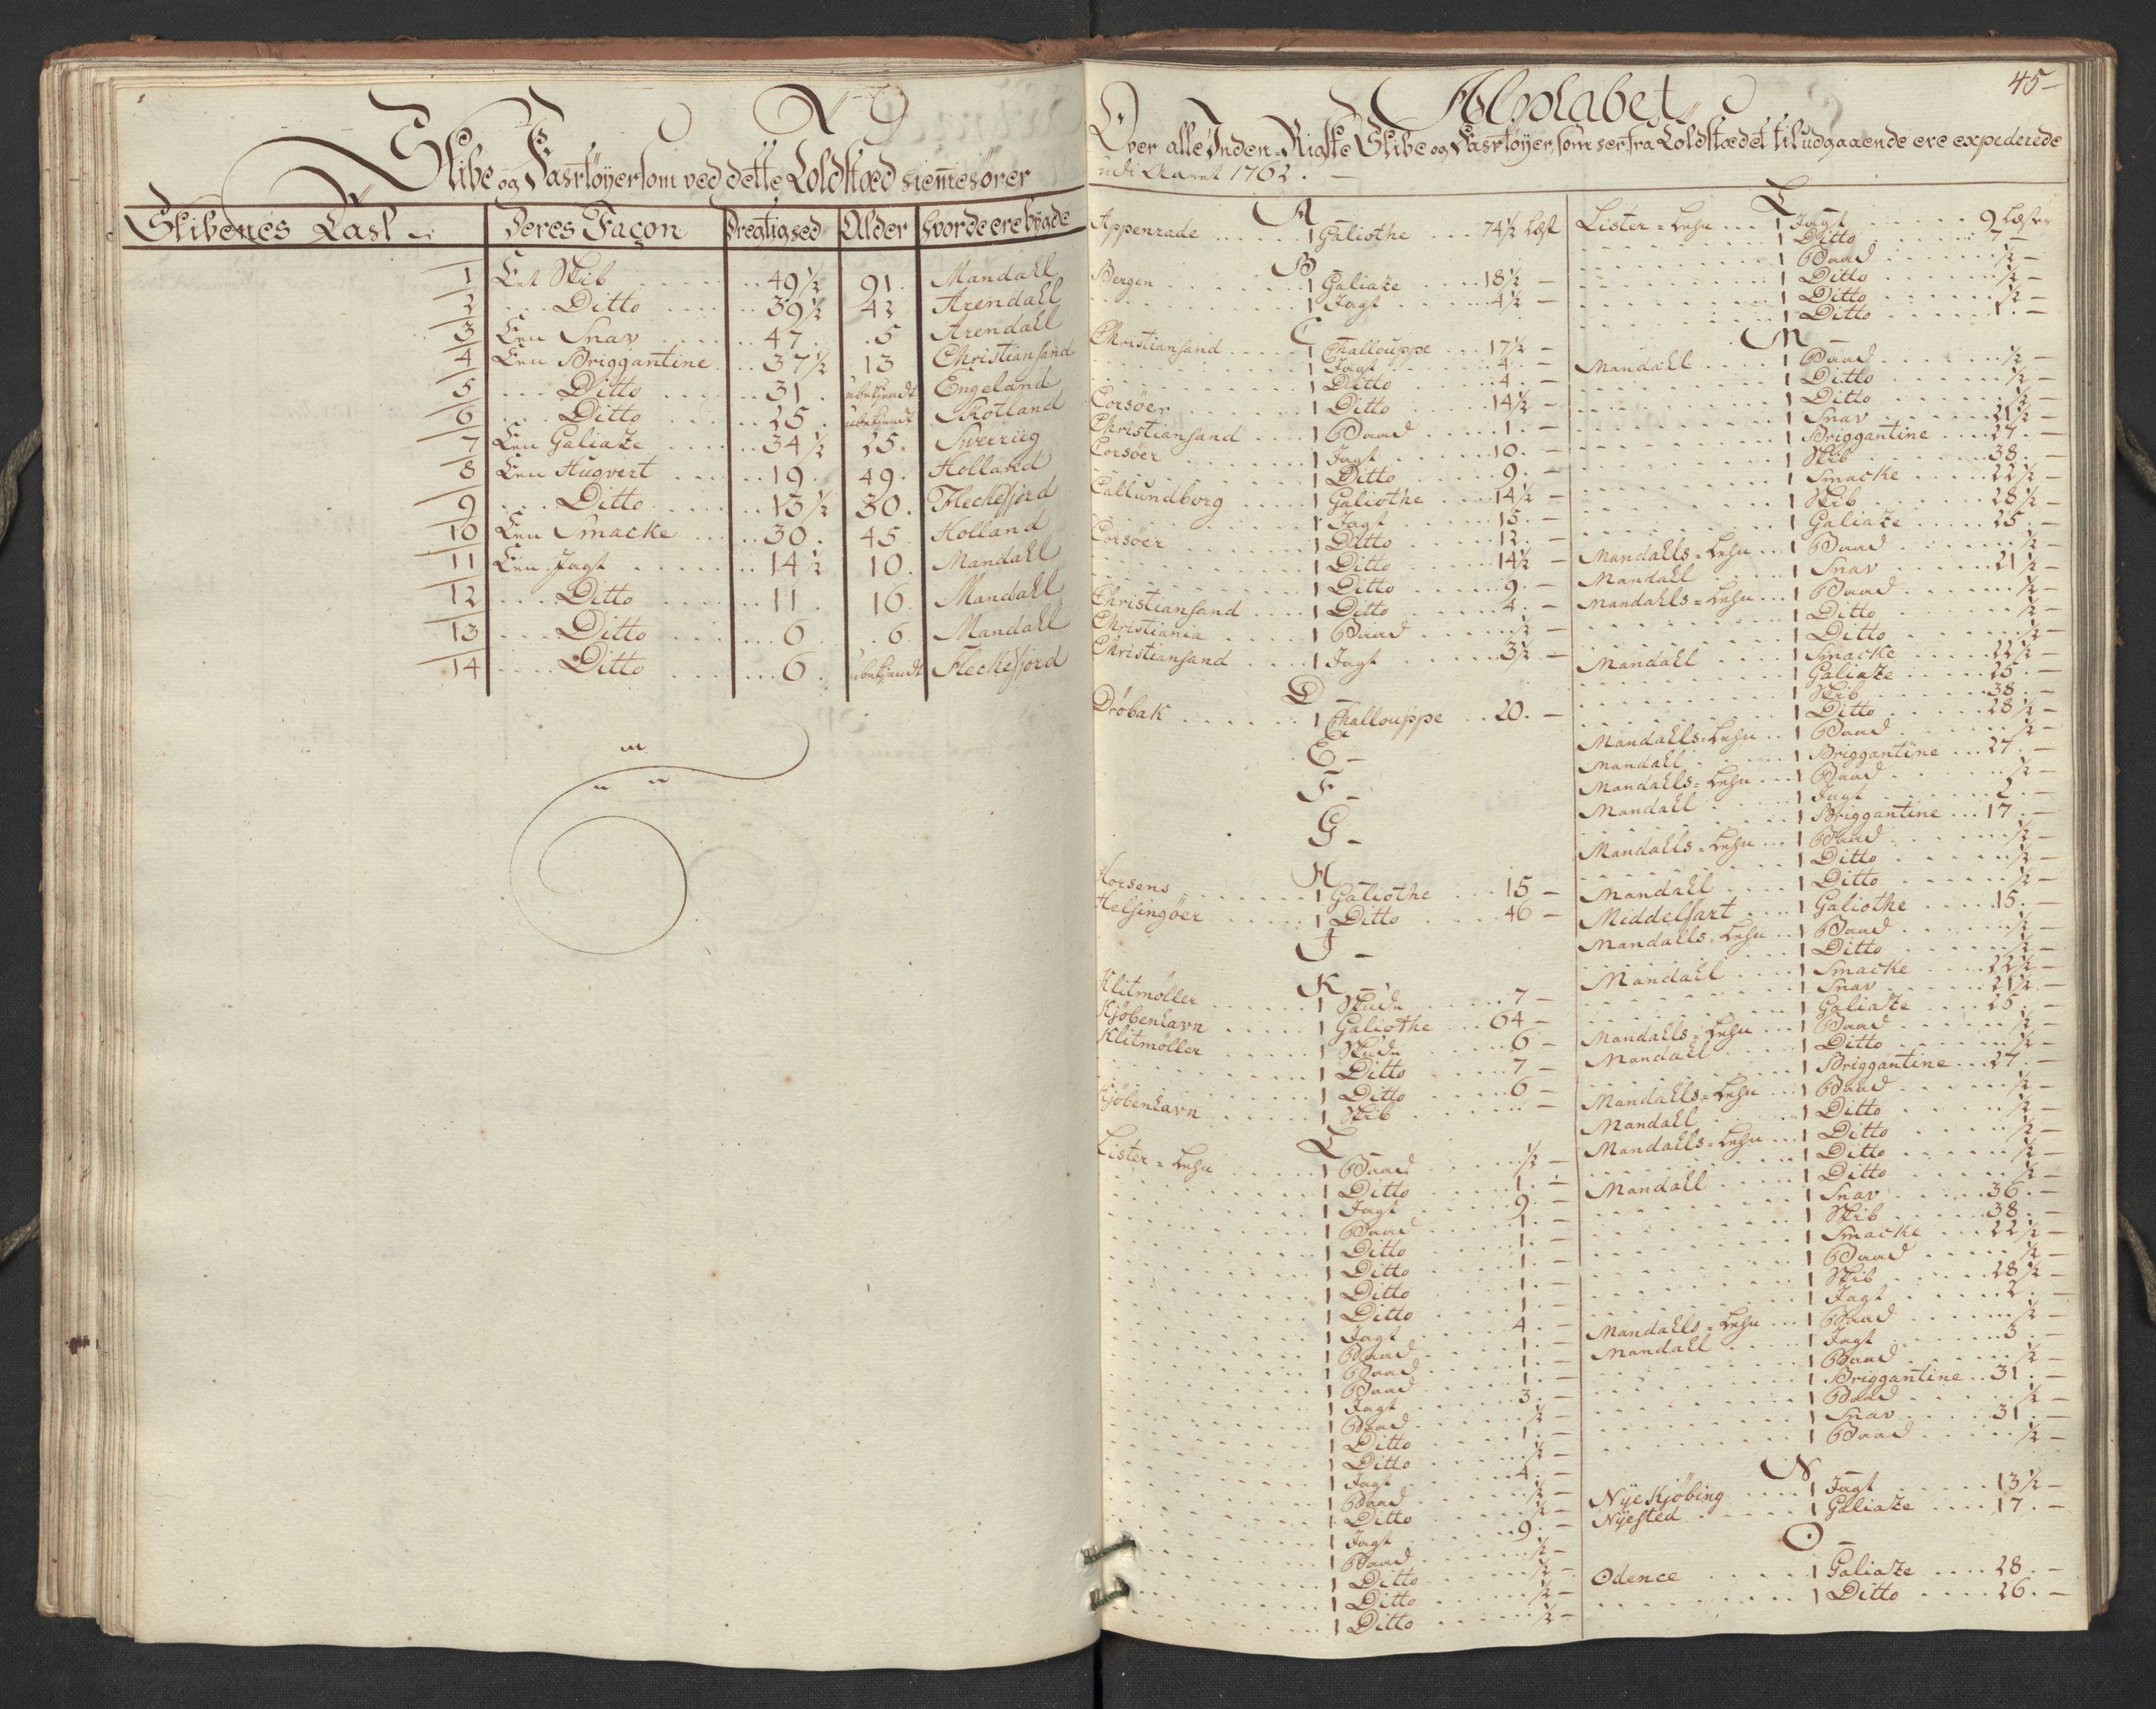 Skibe og Fartöyer som ved dette Toldsted hiemmehörer
Skibenes Tall | Deres Façon | Drægtighed | Alder | hvor de ere bygde
1 Eet Skib 49½ 91. Mandahl
2 Ditto 39½ 42 Arendahl
3 Een Snav 47. 5 Arendahl
4 Een Briggantine 37½ 13 Christiansand
5 Ditto 31. ubekiendt Engeland
6 Ditto 25. ubekiendt Skotland
7 Een Galiaze 34½ 25. Sverrig
8 Een Huqvert 19. 49. Holland
9 Ditto 13½ 30. Fleckefjord
10 Een Smacke 30. 45 Holland
11 Een Jagt 14½ 10. Mandahl
12 Ditto 11. 16 Mandahl
13 Ditto 6 6. Mandahl
14 Ditto 6. ubekiendt Fleckefjord
45
Alphabet
Over alle Inden-Rigske Skibe og Fartöyer, som her fra Toldstædet til udgaaende ere expederede
udi Aaret 1762.
A
Appenrade 1 Galiothe 74½ Læst
B
Bergen 1 Galiaze 18½ –
1 Jagt 4½ –
C
Christiansand 1 Challouppe 17½ –
1 Jagt 4. –
1 Ditto 4. –
Corsöer 1 Ditto 14½ –
Christiansand 1 Baad 1. –
Corsöer 1 Jagt 10. –
1 Ditto 9. –
Callundborg 1 Galiothe 14½ –
1 Jagt 15. –
Corsöer 1 Ditto 12. –
1 Ditto 14½ –
1 Ditto 9. –
Christiansand 1 Ditto 4. –
Christiania 1 Baad ½ –
Christiansand 1 Jagt 3½ –
D –
Dröbak 1 Challouppe 20. –
E –
F –
G –
H –
Horsens 1 Galiothe 15 –
Helsingöer 1 Ditto 46 –
J –
K –
Klitmöller 1 Skude 7 –
Kjöbenhavn 1 Galiothe 64 –
Klitmöller 1 Skude 6 –
1 Ditto 7 –
1 Ditto 6 –
Kjöbenhavn 1 Skib –
L
Lister-Lehn 1 Baad ½ –
1 Ditto 1. –
1 Jagt 9. –
1 Baad 1. –
1 Ditto 1. –
1 Ditto 1. –
1 Ditto 1. –
1 Ditto 1. –
1 Jagt 4. –
1 Baad 1. –
1 Baad 1. –
1 Baad 1. –
1 Jagt 3. –
1 Baad ½ –
1 Ditto 1. –
1 Ditto ½ –
1 Jagt 4. –
1 Baad ½ –
1 Ditto ½ –
1 Jagt 9. –
1 Baad ½ –
1 Ditto ½ –
1 Ditto ½ –
1 Ditto ½ –
L
Lister-Lehn 1 Jagt 9 Læster
1 Ditto 7 –
1 Baad ½ –
1 Ditto ½ –
1 Ditto ½ –
1 Ditto 1. –
M –
Mandahl 1 Baad ½ –
1 Ditto ½ –
1 Ditto ½ –
1 Snav 21½ –
1 Briggantine 27. –
1 Skib 38. –
1 Smacke 22½ –
1 Skib 28½ –
1 Galiaze 25. –
Mandahls-Lehn 1 Baad ½ –
Mandahl 1 Snav 21½ –
Mandahls-Lehn 1 Baad ½ –
1 Ditto ½ –
1 Ditto ½ –
Mandahl 1 Smacke 22½ –
1 Galiaze 25. –
1 Skib 38. –
1 Ditto 28½ –
Mandahls-Lehn 1 Baad ½ –
Mandahl 1 Briggantine 27. –
Mandahls-Lehn 1 Baad ½ –
Mandahl 1 Jagt 2. –
1 Briggantine 17. –
Mandahls-Lehn 1 Baad ½ –
1 Ditto ½ –
Mandahl 1 Ditto ½ –
Middelfart 1 Galiothe 15. –
Mandahls-Lehn 1 Baad ½ –
1 Ditto ½ –
Mandahl 1 Smacke 22½ –
1 Snav 21½ –
1 Galiaze 25. –
Mandahls-Lehn 1 Baad ½ –
Mandahl 1 Ditto ½ –
1 Briggantine 27. –
Mandahls-Lehn 1 Baad ½ –
Mandahl 1 Ditto ½ –
Mandahls-Lehn 1 Ditto ½ –
1 Ditto ½ –
Mandahl 1 Ditto ½ –
1 Snav 36. –
1 Skib 38. –
1 Smacke 22½ –
1 Baad ½ –
1 Skib 28½ –
1 Jagt 2. –
Mandahls-Lehn 1 Baad ½ –
Mandahl 1 Jagt 3. –
1 Baad ½ –
1 Briggantine 31. –
1 Baad ½ –
1 Snav 31. –
1 Baad ½ –
N –
Nÿe Kjöbing 1 Jagt 13½ –
Nÿested 1 Galiaze 17. –
O –
Odence 1 Galiaze 28. –
1 Ditto 26. –